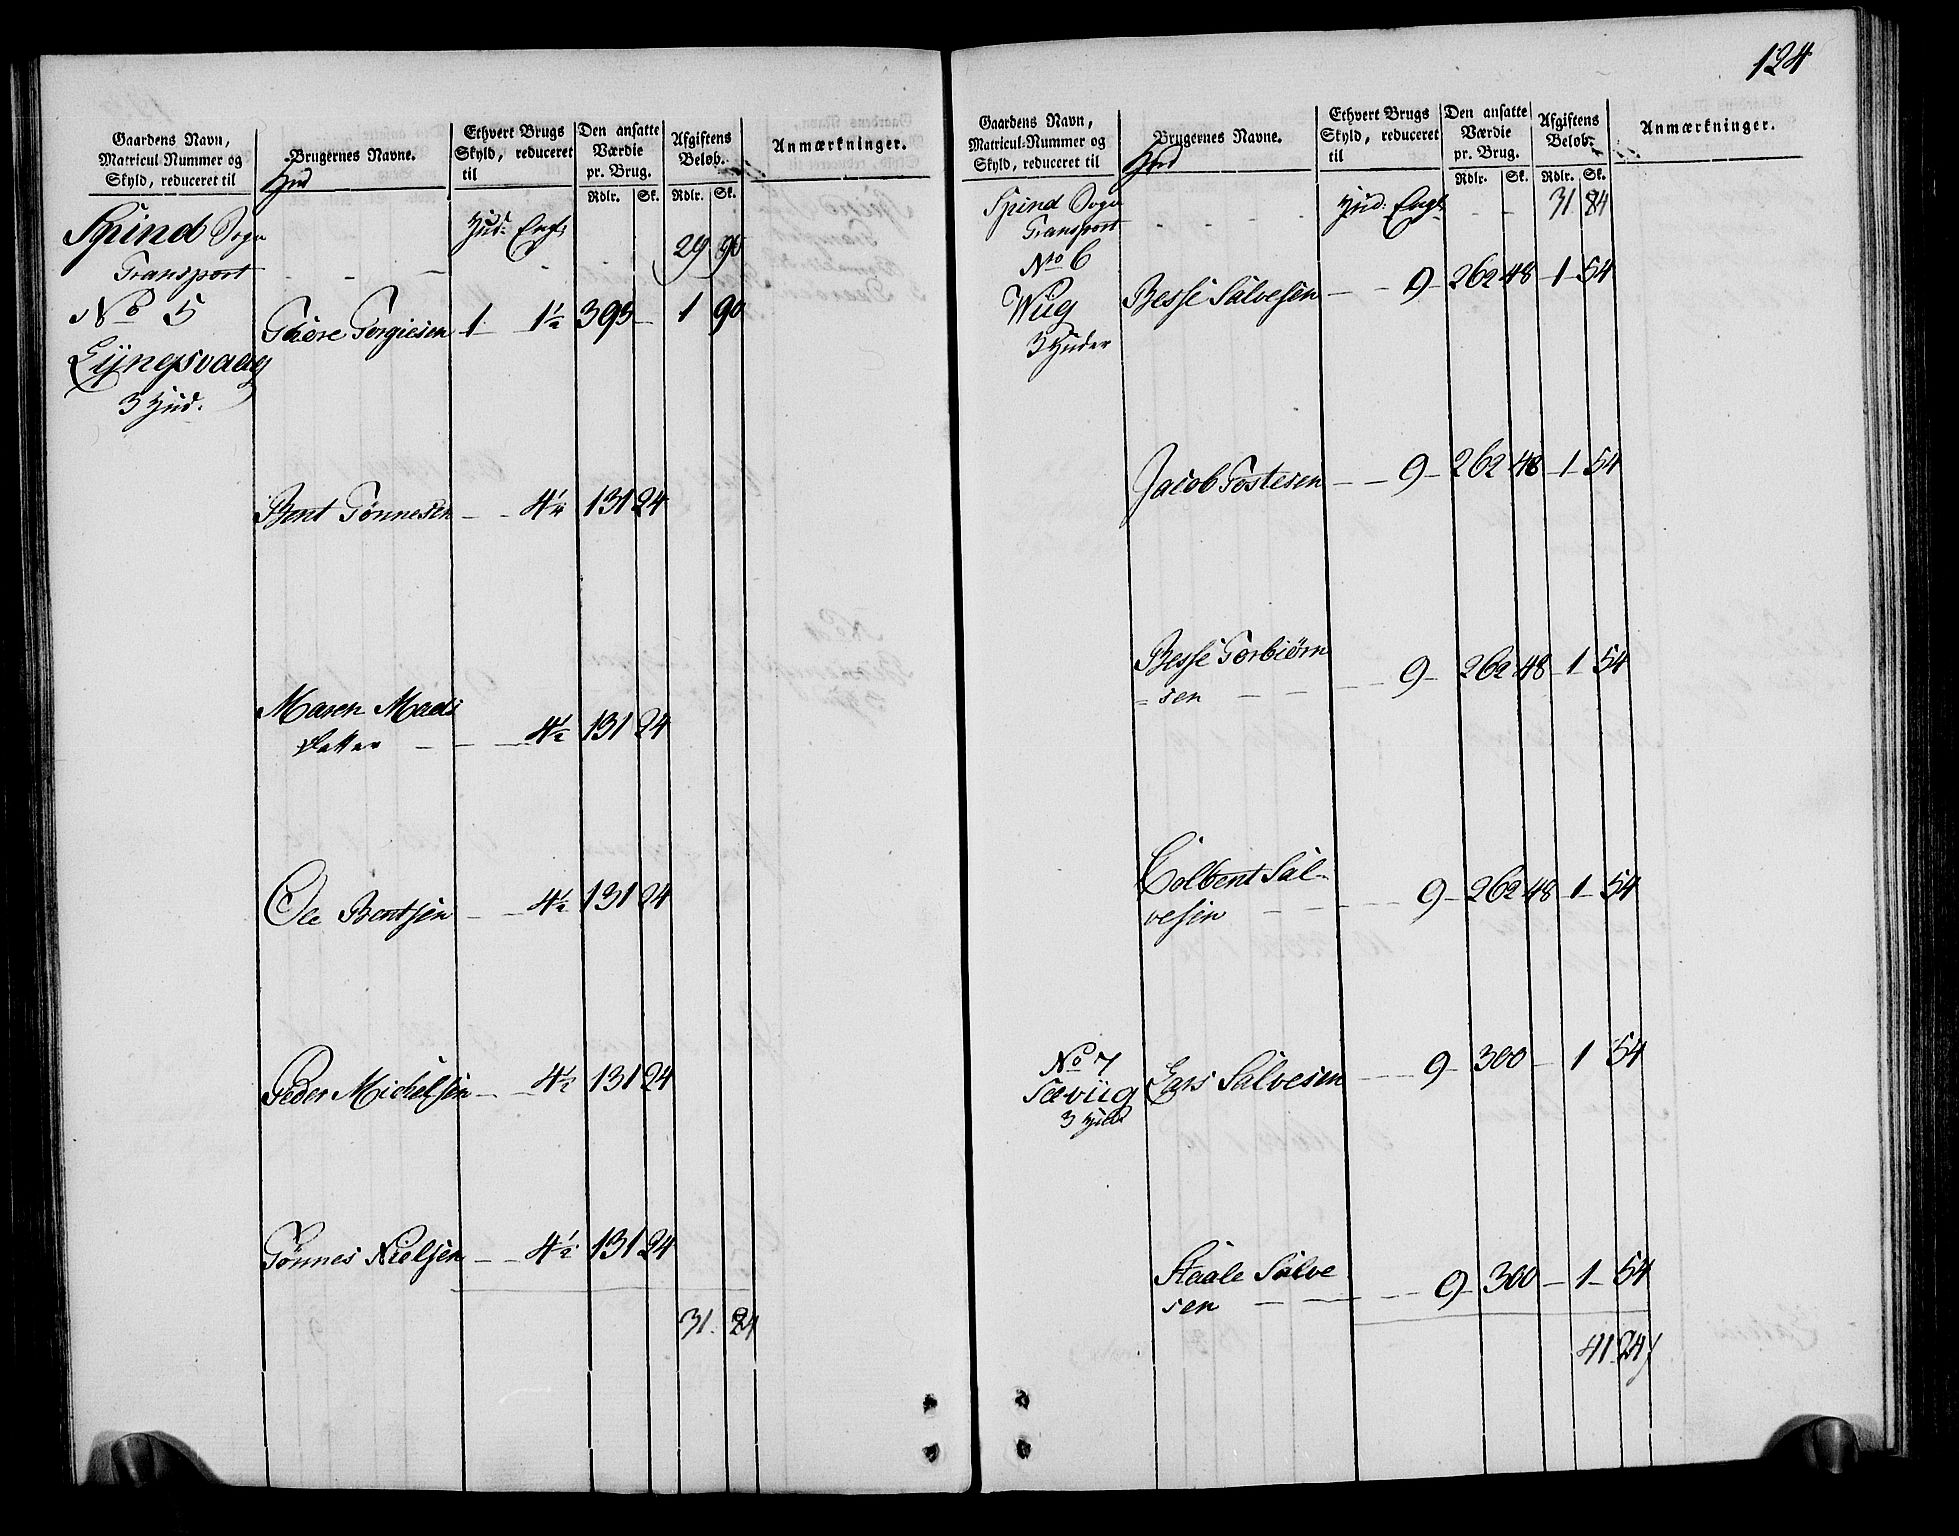 124
Gaardens Navn,
Matricul-Nummer og
Skyld, reduceret til
Brugernes Navne.
Hud
Ethvert Brugs
Skyld, reduceret
til
Den ansatte
Værdie
pr. Brug.
Rdlr. Sk.
Afgiftens
Beløb.
Rdlr. Sk.
Anmærkninger.
Spind Sogn
Transport - - - Hud: Engl: - 29 90
No 5
Lyngsvaag
3 Hud.
Thore Torgiesen 1 1½ 393 - 1 90
Bent Tønnesen - - 4½ 131 24
Maren Mads
datter - - - 4½ 131 24
Ole Bentsen - - 4½ 131 24
Peder Michelsen - - 4½ 131 24
Tønnes Nielsen - - 4½ 131 24
31. 84
Gaardens Navn,
Matricul-Nummer og
Skyld, reduceret til
Brugernes Navne.
Hud
Ethvert Brugs
Skyld, reduceret
til
Den ansatte
Værdie
pr. Brug.
Rdlr. Sk.
Afgiftens
Beløb.
Rdlr. Sk.
Anmærkninger.
Spind Sogn
Transport - - Hud: Engl: - - 31 84
No 6
Wiig
3 Huder
Besse Salvesen - - 9 - 262 48 - 1 - 54
Jacob Tostesen - - 9 - 262 48 - 1 - 54
Besse Torbiørn
= sen - - - 9 - 262 48 - 1 54
Colbent Sal-
vesen - - - 9 - 262 48 - 1 - 54
No 7
Sæviig
3 Hud
Lars Salvesen - - 9 - 300 - 1 54
Staale Salve
sen - - - 9 - 300 - 1 - 54
41 24